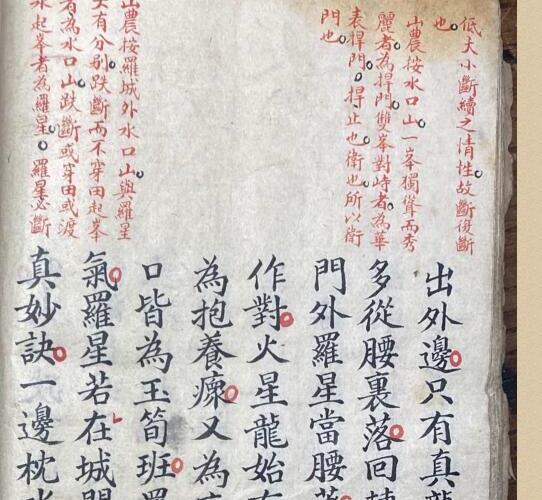 低大小斷續之情性故斷復斷
也
山農按水口山一峯獨聳而秀
麗者為捍門雙峯對峙者為華
表捍門捍止也衛也所以衛
門也
山農按羅城外水口山與羅星
大有分别跌斷而不穿田起峯
者為水口山跌斷或穿田或渡
水起峯者為羅星羅星必斷
出外邊只有真龍
多從腰裏落回
門外羅星當腰
作對火星龍始有
為抱養瘝又為
口皆為玉筍班
氣羅星若在城
真妙訣一邊枕水